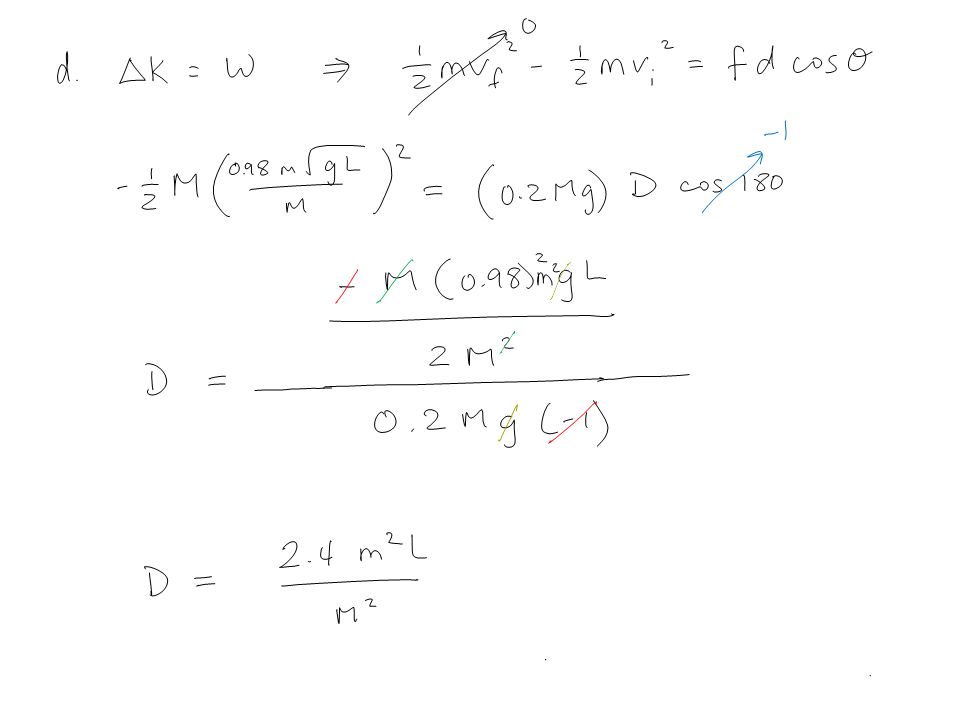 d. ΔK = W ⇒ ½mv_f² 0 - ½mv_i² = f d cosθ
-½ M (0.98 m√gL / M)² = (0.2Mg) D cos 180 -1
- M (0.98)²m²g L
2 M²
D =
0.2 M g (-1)
2.4 m²L
D =
M²